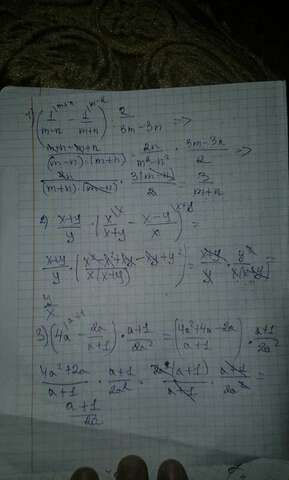 1) (1/(m-n) ^{m+n} - 1/(m+n) ^{m-n}) 2/(3m-3n) =>
(m+n-m+n)/((m-n)·(m+n)) = 2n/(m²-n²) · (3m-3n)/2 =>
2n/((m+n)·(m-n)) · 3(m-n)/2 = 3/(m+n)
2) (x+y)/y · (x/(x+y) ^{x} - (x-y)/x ^{x+y}) =
(x+y)/y · ((x²-x²+xy-xy+y²)/(x(x+y))) = (x+y)/y · y²/(x(x+y)) =
y/x
3) (4a ^{a+1} - 2a/(a+1)) · (a+1)/2a² = ((4a²+4a-2a)/(a+1)) · (a+1)/2a²
(4a²+2a)/(a+1) · (a+1)/2a² = 2a(a+1)/(a+1) · (a+1)/2a² =
(a+1)/2a